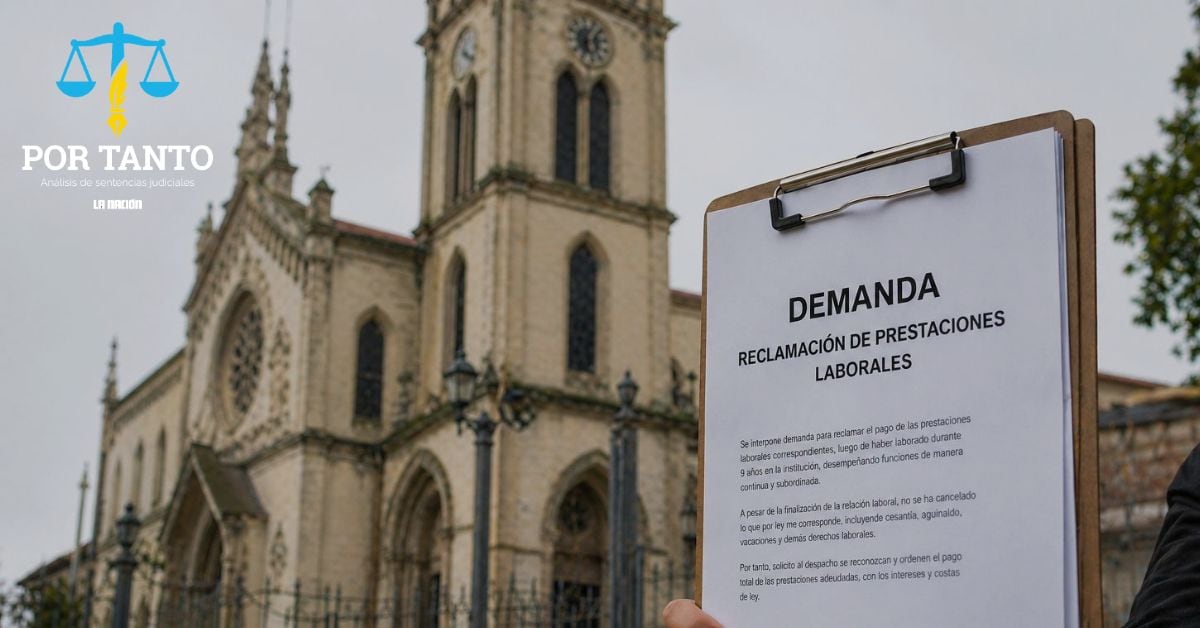 POR TANTO
Análisis de sentencias judiciales
LA NACIÓN
DEMANDA
RECLAMACIÓN DE PRESTACIONES
LABORALES
Se interpone demanda para reclamar el pago de las prestaciones
laborales correspondientes, luego de haber laborado durante
9 años en la institución, desempeñando funciones de manera
continua y subordinada.
A pesar de la finalización de la relación laboral, no se ha cancelado
lo que por ley me corresponde, incluyende cesantía, aguinaldo,
vacaciones y demás derechos laborales.
Por tanto, solicito al despacho se reconozcan y ordenen el pago
total de las prestaciones adeudadas, con los intereses y costas
de ley.